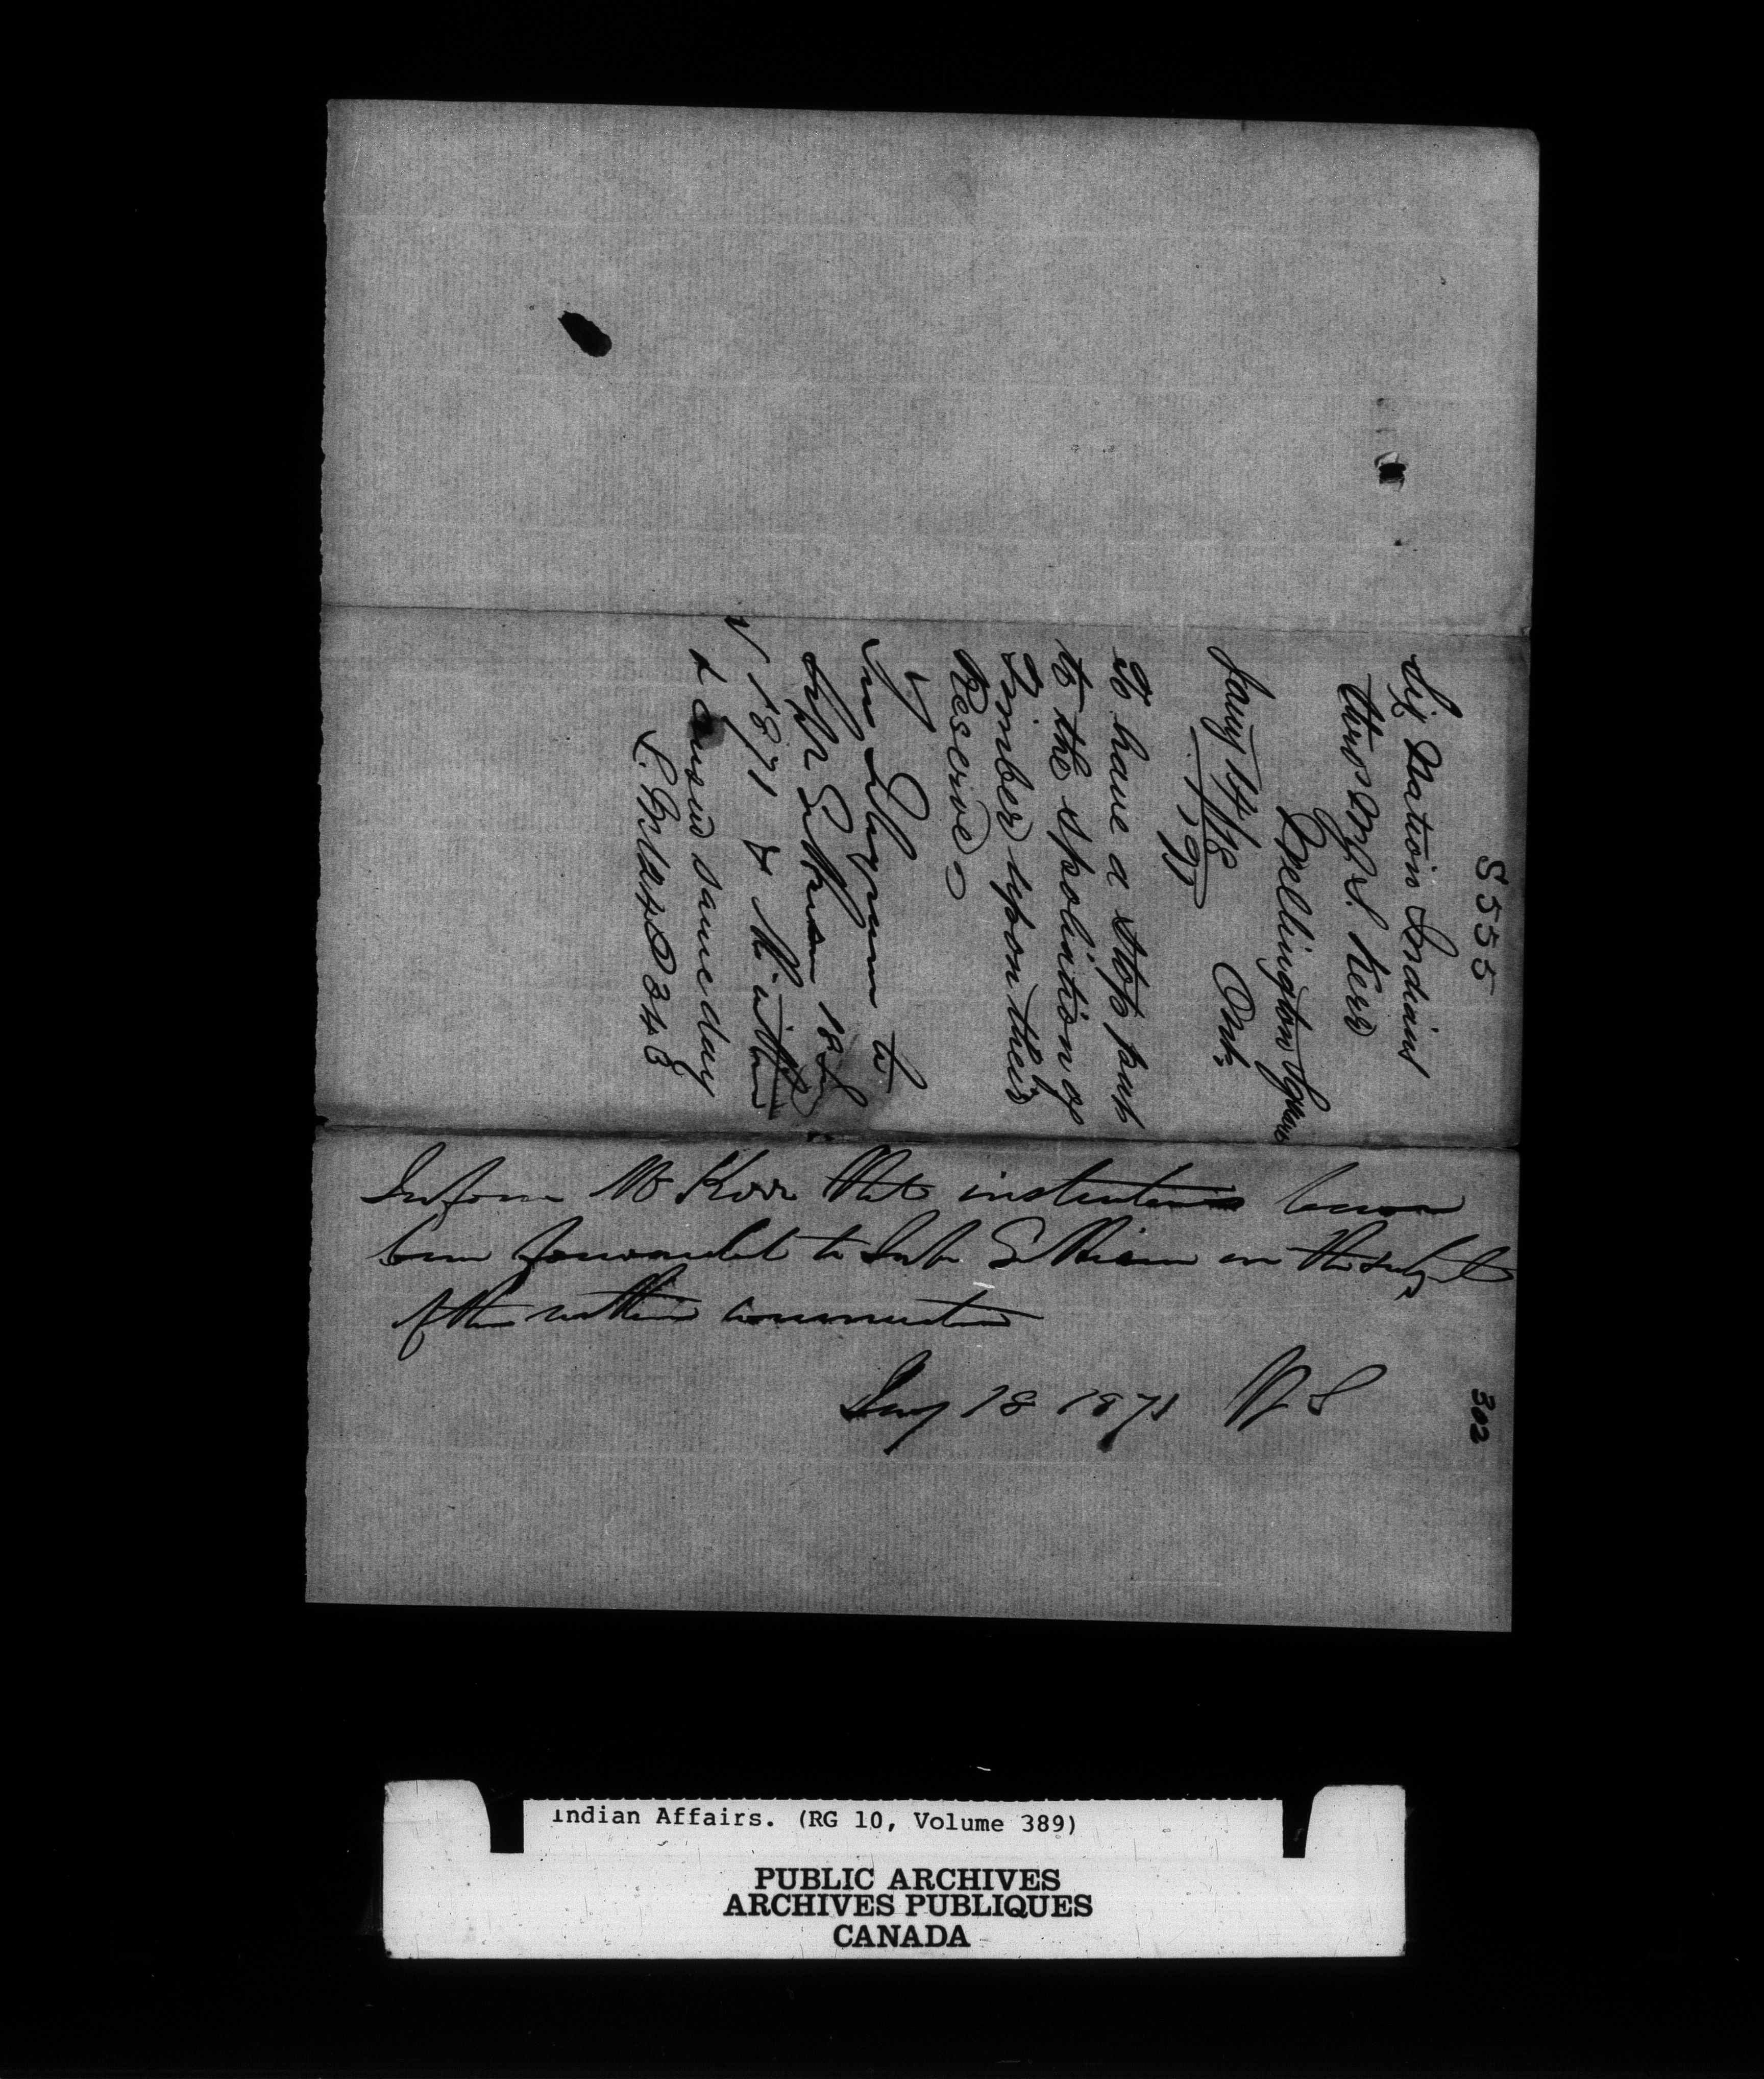 S555
Six Nation Indians
thro' W. J. S. Kerr
Wellington Square
Ont.
Jany 14/18
195
To have a stop put
to the spoliation of
Timber upon their
Reserve
See Telegram to
Supt Gilkison 18
1871
& answer same day
302
Inform Mr Kerr that instructions have
been forwarded to Supt Gilkison on the subject
of the within communication
Jany 18 1871
Indian Affairs. (RG 10, Volume 389)
PUBLIC ARCHIVES
ARCHIVES PUBLIQUES
CANADA